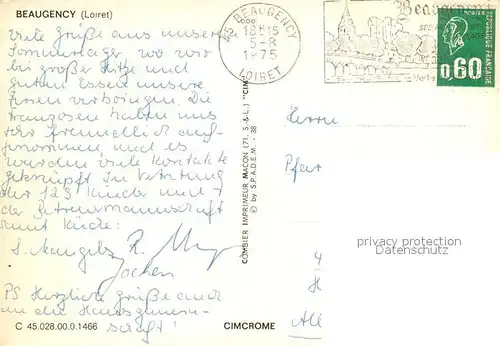 BEAUGENCY (Loiret)
Viele Grüße aus unserem
Sommerlager wo wir
bei großer Hitze und
gutem Essen unsere
Ferien verbringen. Die
Franzosen haben uns
sehr freundlich auf-
genommen und es
wurden viele Kontakte
geknüpft. In Vertretung
der 123 Kinder und
der Betreuermannschaft
samt Küche:
R.
Jochen
PS Herzliche Grüße auch
an die Hausgemein-
schaft!
C 45.028.00.0.1466
CIMCROME
COMBIER IMPRIMEUR MACON (71, S.-&-L.) "CIM"
© by S.P.A.D.E.M. - 38
BEAUGENCY
18H15
5-8
1975
LOIRET
Beaugency
REPUBLIQUE FRANÇAISE
0,60
POSTES
Herrn
Pfar
privacy protection
AnsichtskartenVersand.com